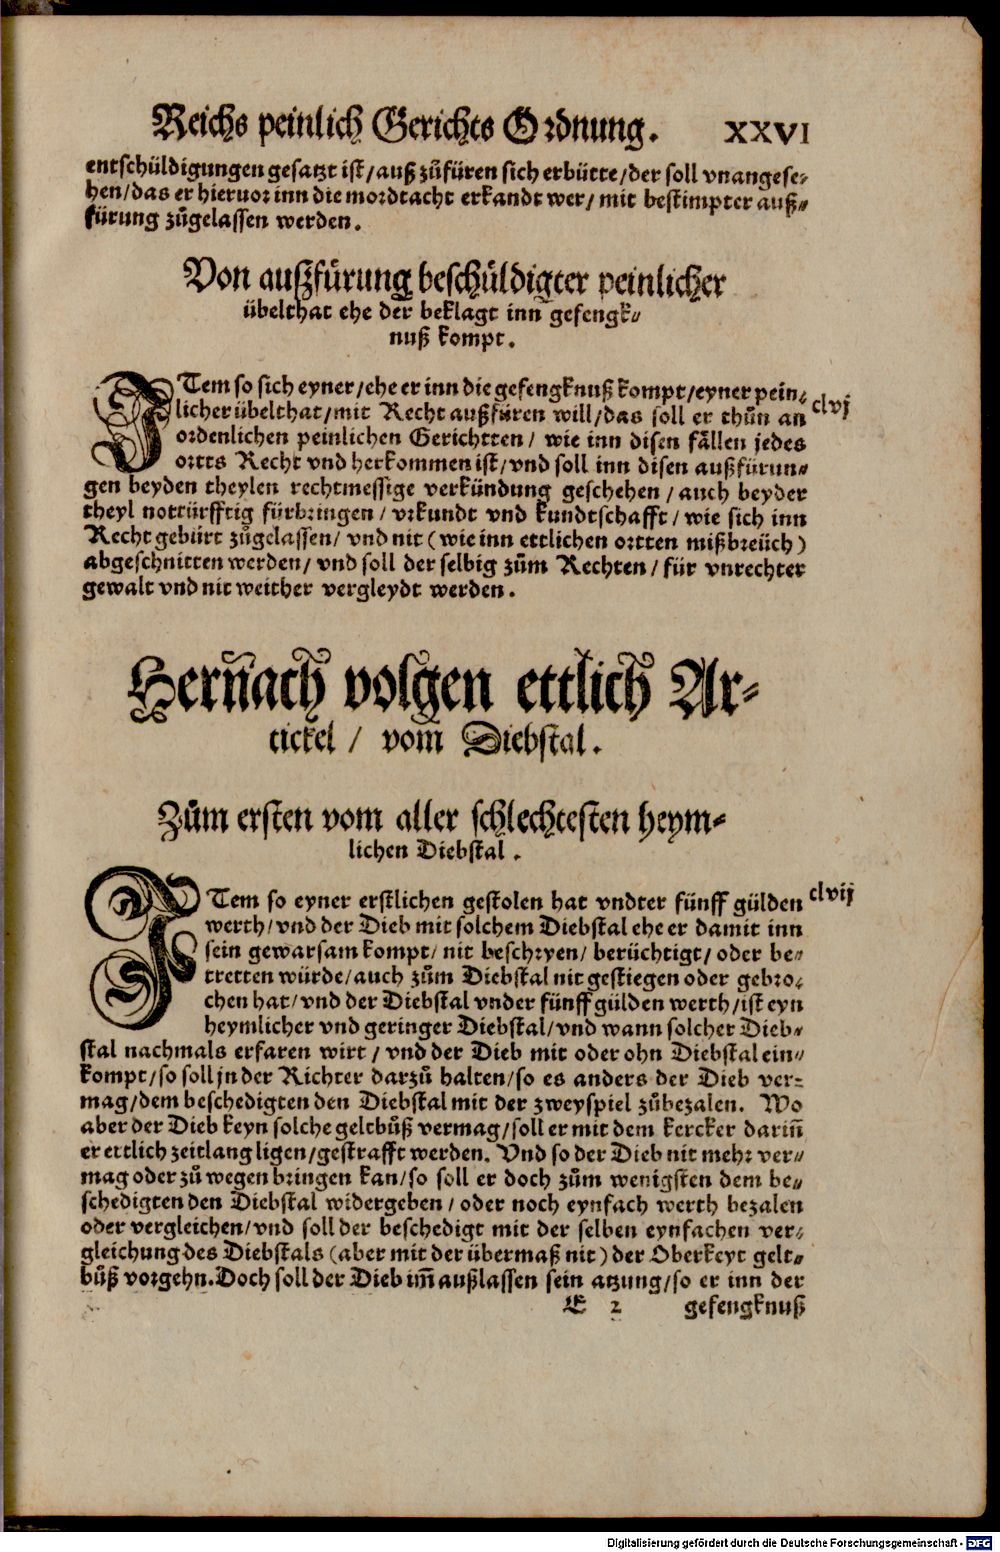 Reichs peinlich Gerichts Ordnung. XXVI
entschüldigungen gesatzt ist/auß zůfüren sich erbütte/der soll vnangese⸗
hen/das er hieruor inn die mordtacht erkandt wer/ mit bestimpter auß⸗
fürung zůgelassen werden.
Von außfürung beschüldigter peinlicher
übelthat ehe der beklagt inn gefengk⸗
nuß kompt.
ITem so sich eyner/ehe er inn die gefengknuß kompt/eyner pein⸗
licher übelthat/mit Recht außfüren will/das soll er thůn an clvj
ordenlichen peinlichen Gerichtten/ wie inn disen fällen jedes
ortts Recht vnd herkommen ist/vnd soll inn disen außfürun⸗
gen beyden theylen rechtmessige verkündung geschehen/auch beyder
theyl notturfftig fürbringen/vrkundt vnd kundtschafft/wie sich inn
Recht gebürt zůgelassen/ vnd nit (wie inn ettlichen ortten mißbreüch)
abgeschnitten werden/ vnd soll der selbig zům Rechten/für vnrechter
gewalt vnd nit weither vergleydt werden.
Hern̄ach volgen ettlich Ar⸗
tickel/ vom Diebstal.
Zům ersten vom aller schlechtesten heym⸗
lichen Diebstal.
ITem so eyner erstlichen gestolen hat vndter fünff gülden clvij
werth/vnd der Dieb mit solchem Diebstal ehe er damit inn
sein gewarsam kompt/ nit beschryen/ berüchtigt/ oder be⸗
tretten würde/auch zům Diebstal nit gestiegen oder gebro⸗
chen hat/vnd der Diebstal vnder fünff gülden werth/ist eyn
heymlicher vnd geringer Diebstal/vnd wann solcher Dieb⸗
stal nachmals erfaren wirt/ vnd der Dieb mit oder ohn Diebstal ein⸗
kompt/so soll jn der Richter darzů halten/so es anders der Dieb ver⸗
mag/dem beschedigten den Diebstal mit der zweyspiel zůbezalen. Wo
aber der Dieb keyn solche geltbůß vermag/soll er mit dem kercker darin̄
er ettlich zeitlang ligen/gestrafft werden. Vnd so der Dieb nit mehr ver⸗
mag oder zů wegen bringen kan/so soll er doch zům wenigsten dem be⸗
schedigten den Diebstal widergeben/ oder noch eynfach werth bezalen
oder vergleichen/vnd soll der beschedigt mit der selben eynfachen ver⸗
gleichung des Diebstals (aber mit der übermaß nit) der Oberkeyt gelt⸗
bůß vorgehn. Doch soll der Dieb im̄ außlassen sein atzung/so er inn der
E 2 gefengknuß
Digitalisierung gefördert durch die Deutsche Forschungsgemeinschaft - DFG